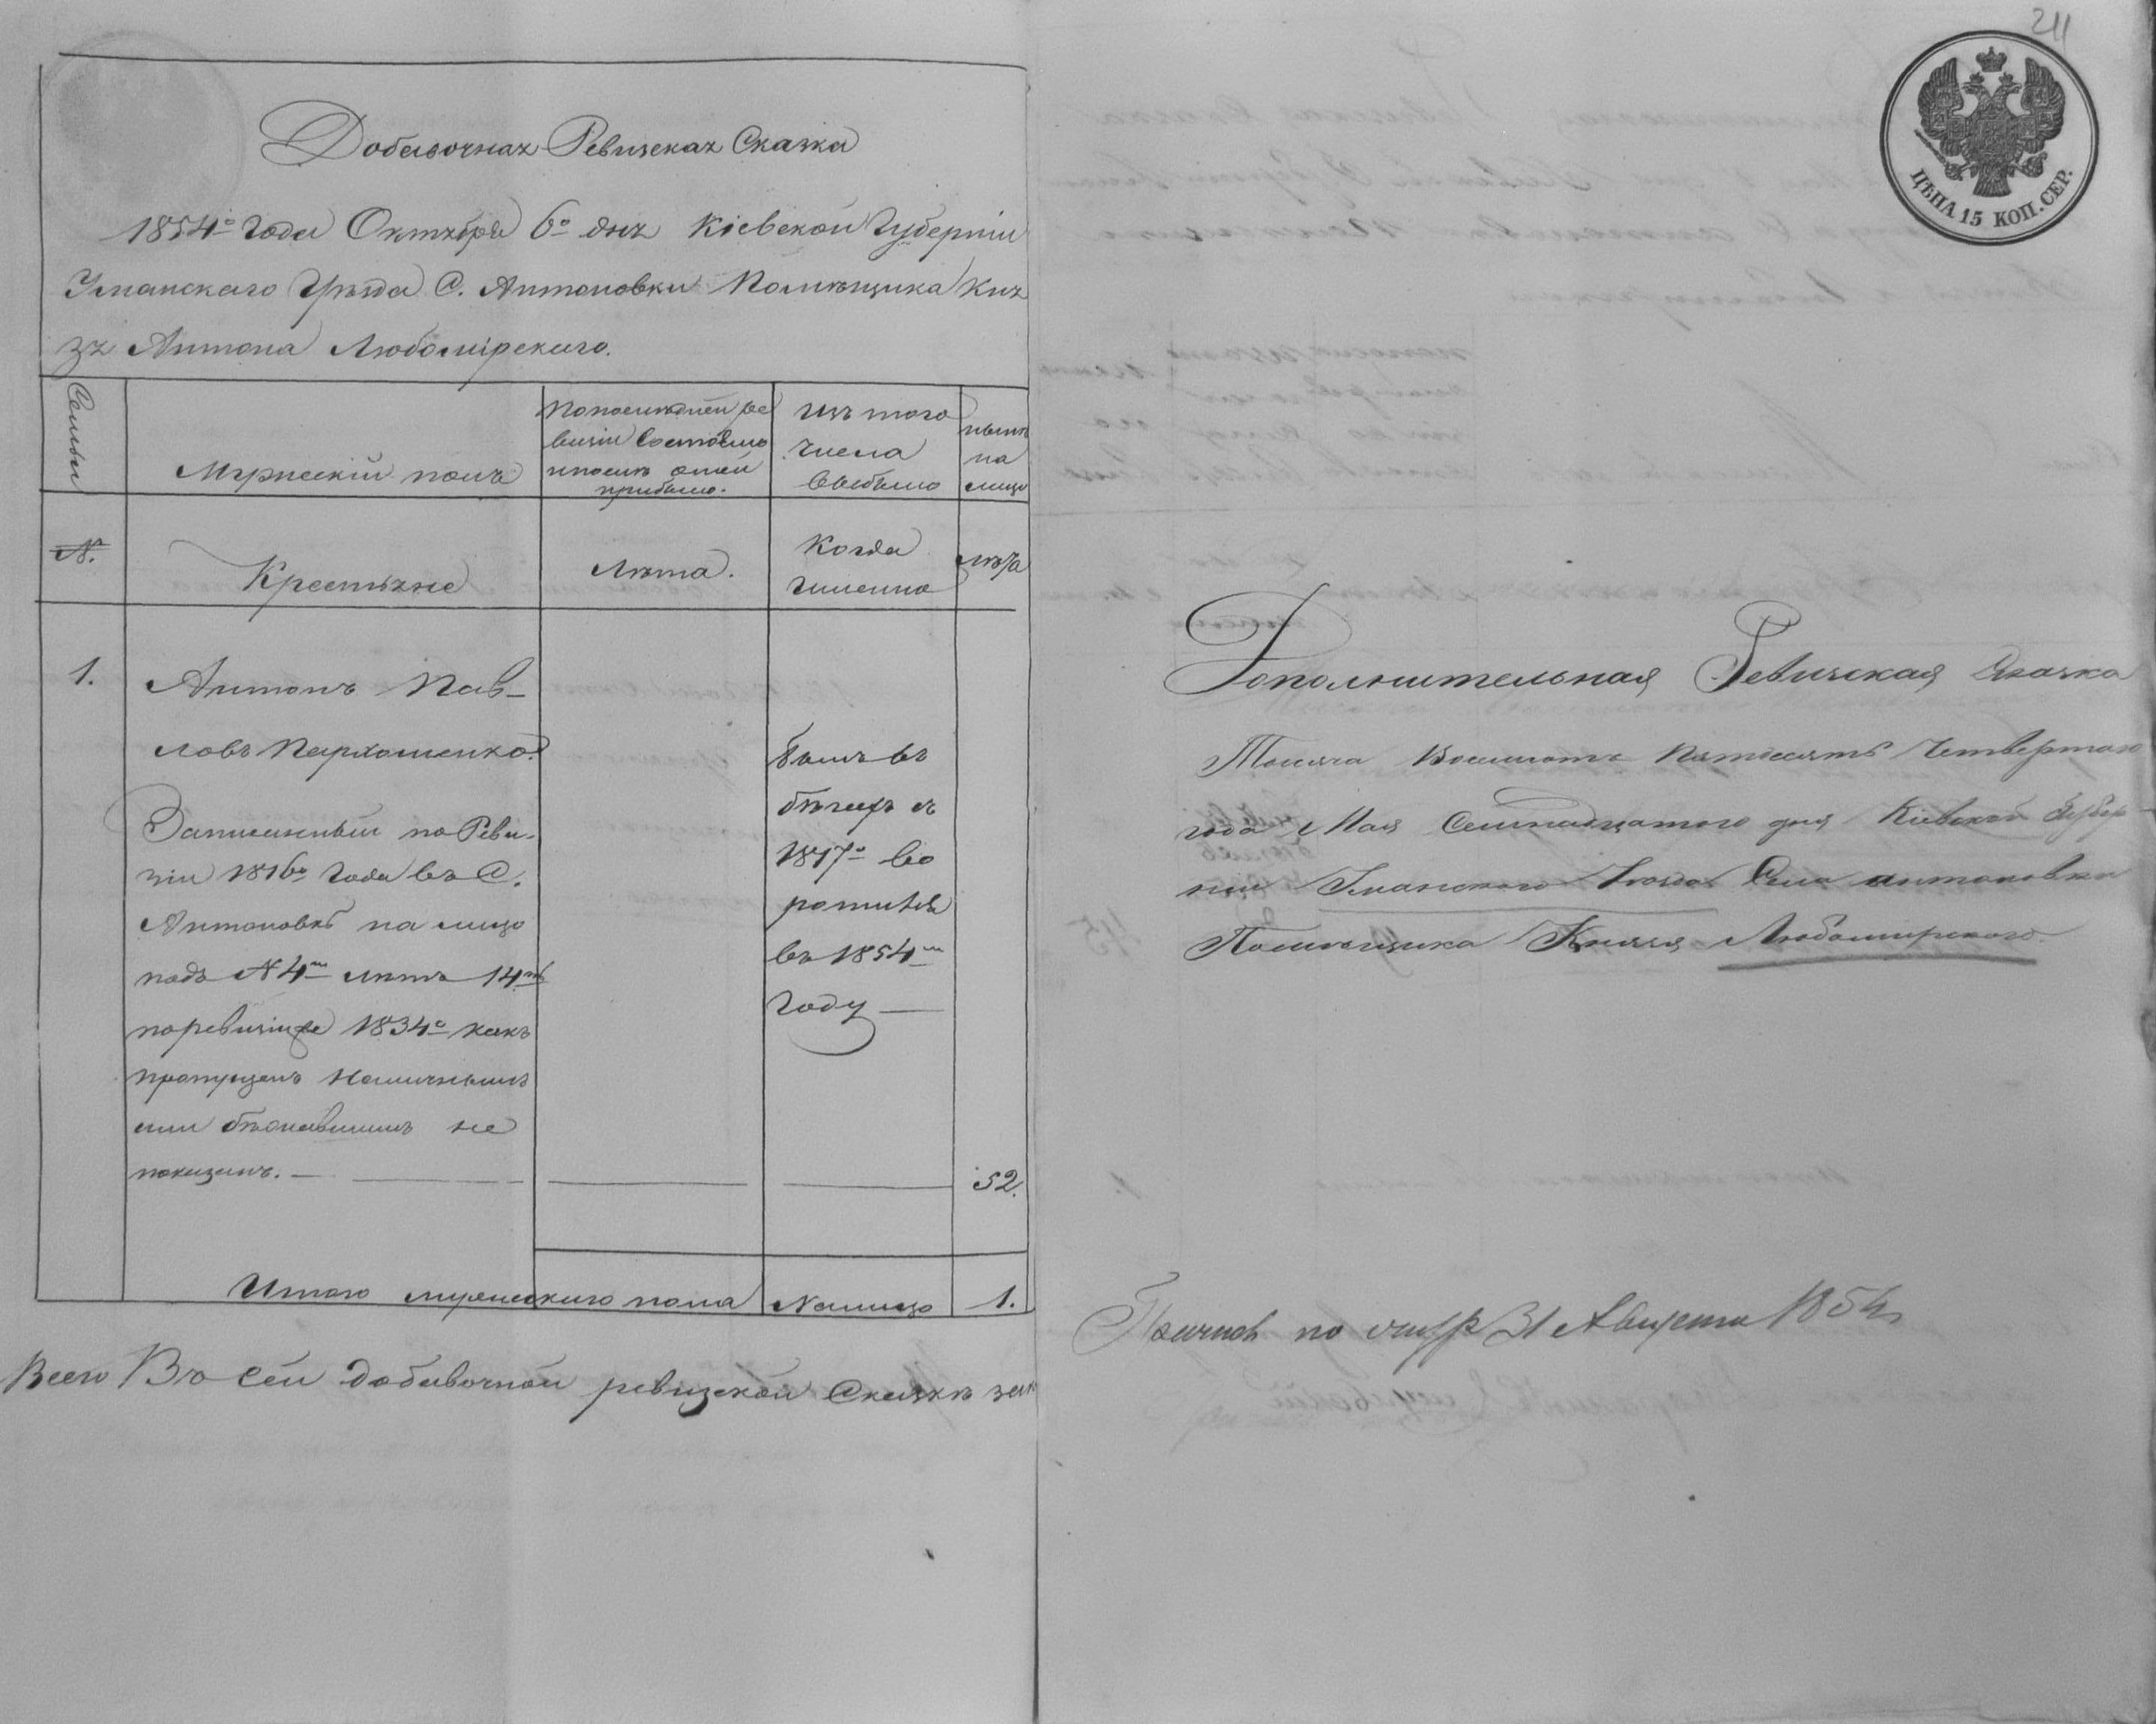 Добавочная Ревизская Сказка
1854го Года Октября 6го дня Кіевской Губерніи
Уманскаго Уѣзда С. Антоновки Помѣщика Кня
зя Антона Любомірскаго.
Семьи
Мужескій полъ
По последней ре
визіи Состояло
и после оной
прибыло.
Изъ того
числа
выбыло
нынѣ
на
лицо
№.
Крестьяне
Лѣта.
Когда
Именно
лѣта
1.
Антонъ Пав-
ловъ Пархоменко.
Записанный по Реви-
зіи 1816го Года въ С.
Антоновкѣ на лицо
подъ N 4м лѣтъ 14ть
по ревизіи же 1834го какъ
пропущенъ Наличнымъ
или бѣжавшимъ не
показанъ.
Былъ въ
бѣгахъ съ
1817го во
ротился
въ 1854м
Году
52.
Итого мужескаго пола Налицо 1.
Всего Въ сей добавочной ревизской Сказкѣ
211
ЦѢНА 15 КОП. СЕР.
Дополнительная Ревизская Сказка
Тысяча Восемсотъ Пятдесятъ Четвертаго
года Мая Семнадцатого дня Кіевской Губер-
ніи Уманского Уѣзда Села Антоновки
Помѣщика Князя Любомирского.
31 Августа 1854